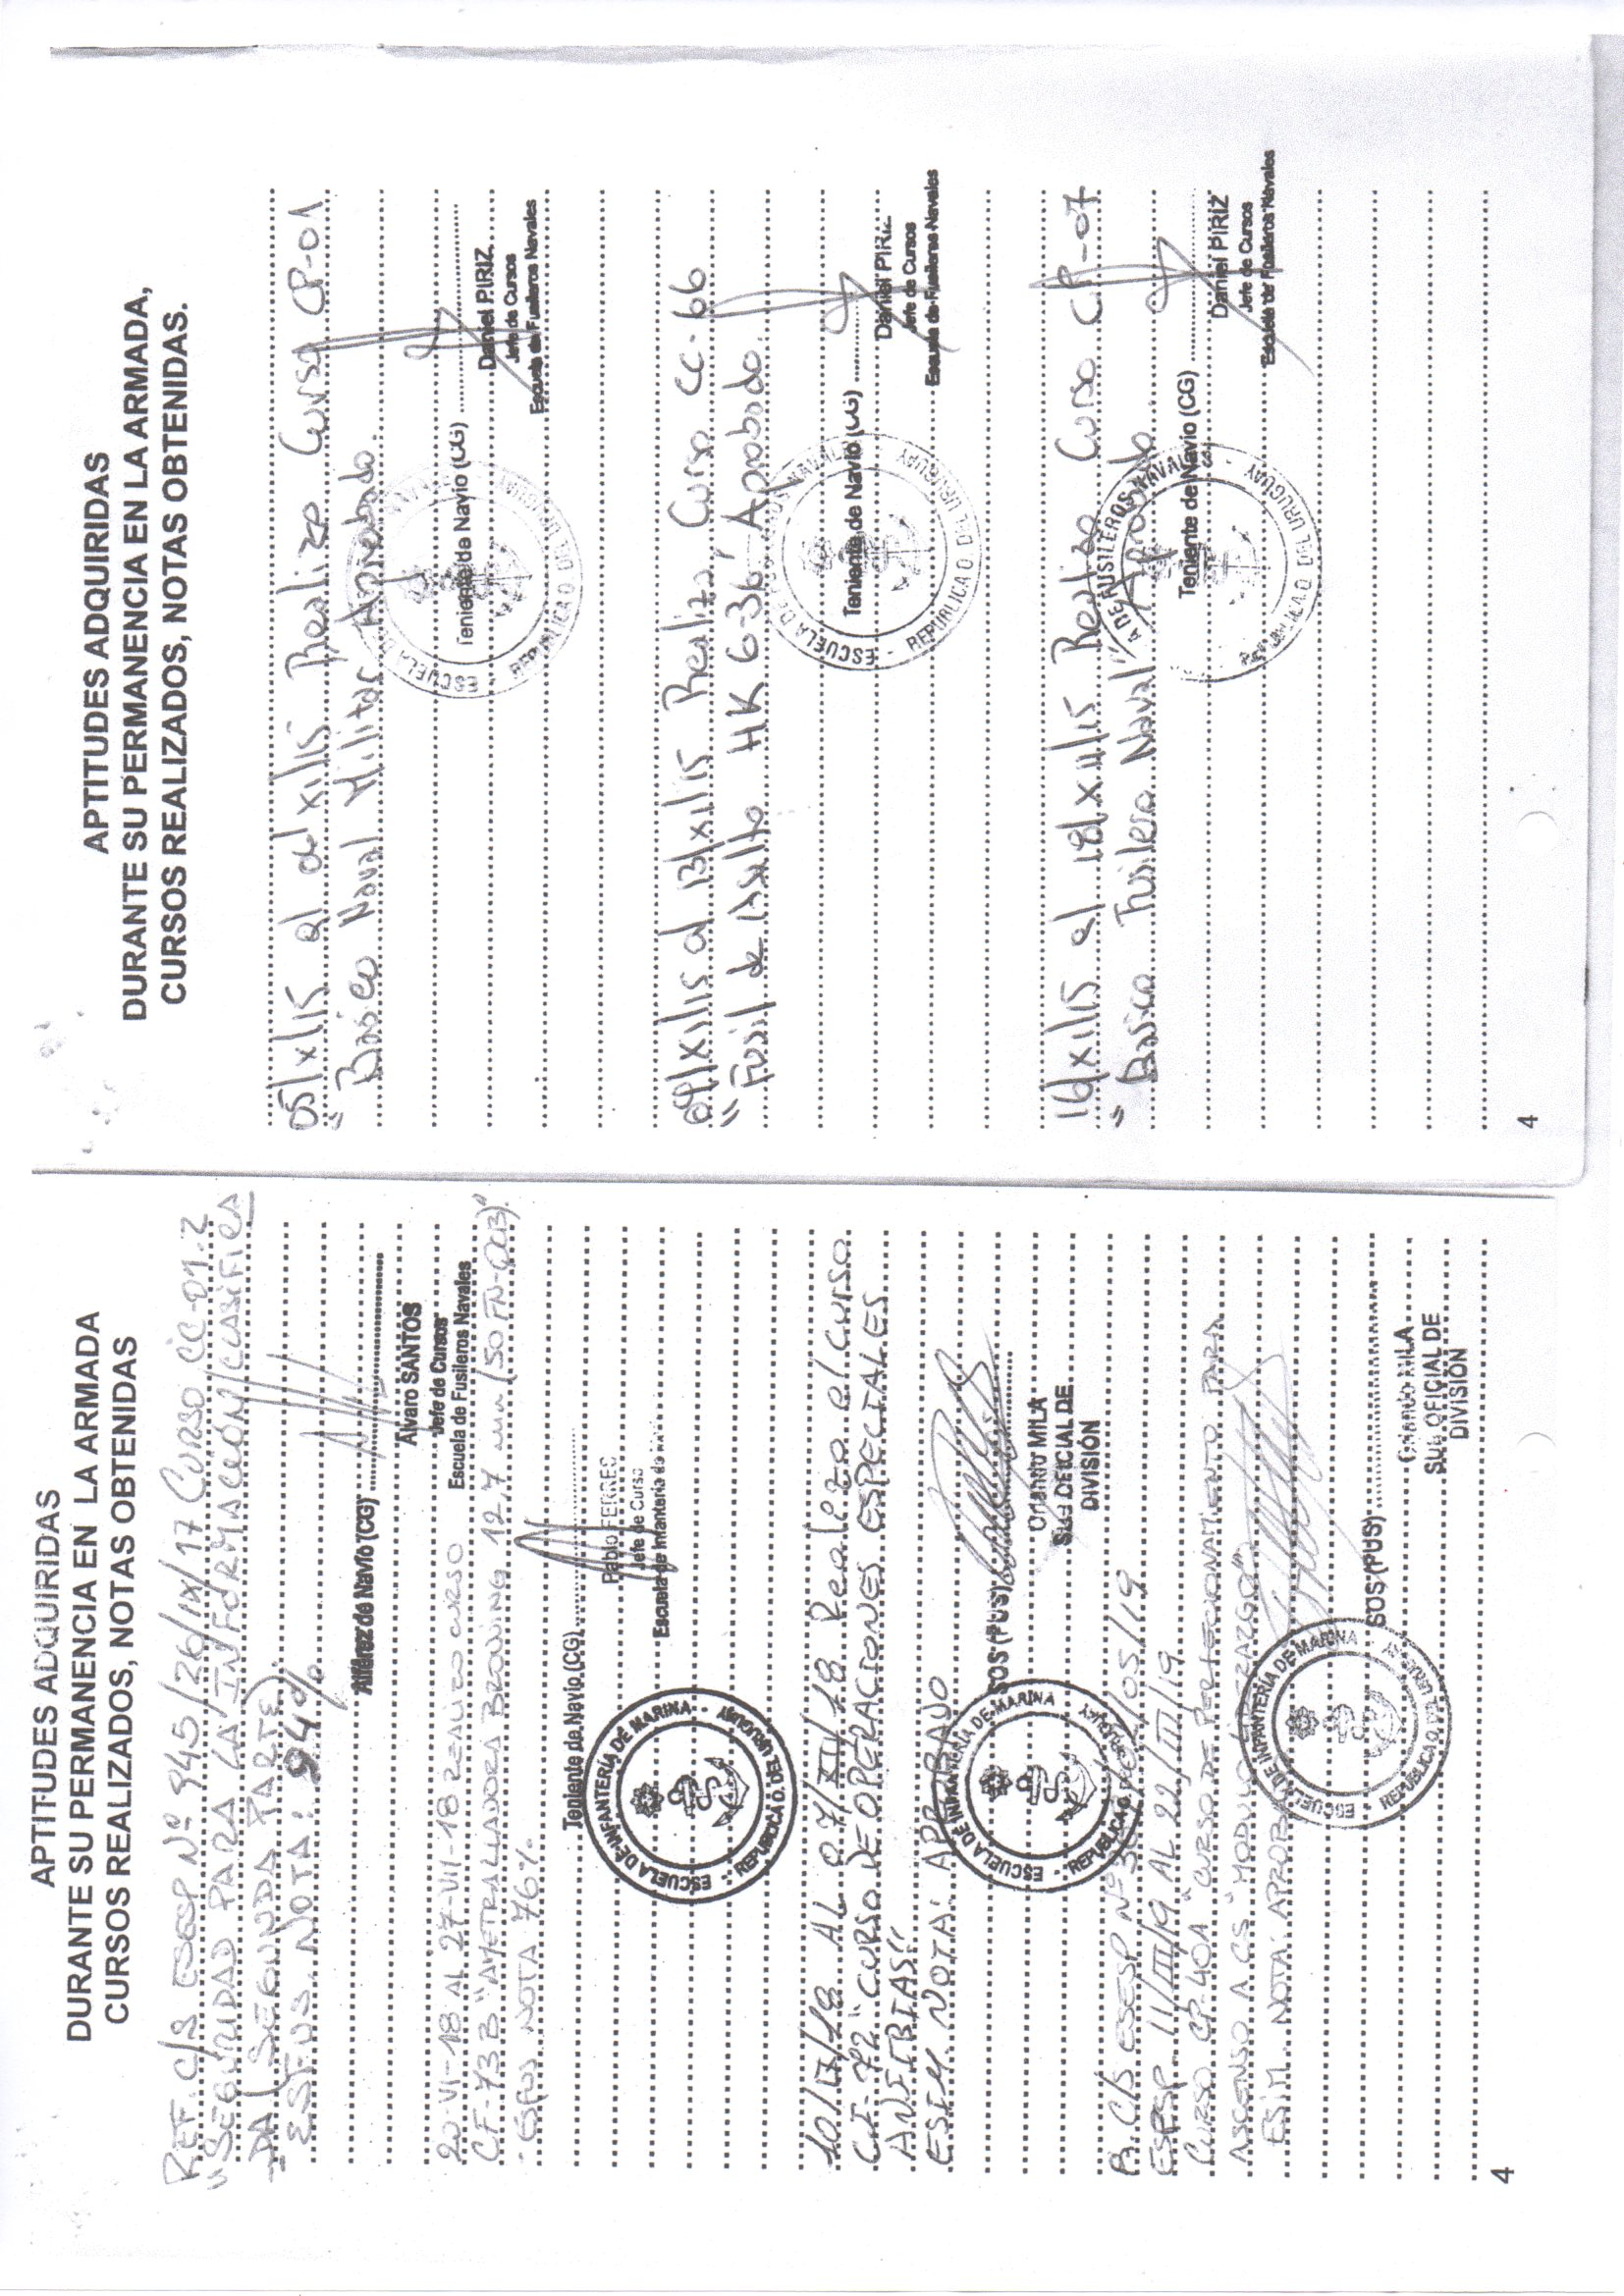 APTITUDES ADQUIRIDAS
DURANTE SU PERMANENCIA EN LA ARMADA
CURSOS REALIZADOS, NOTAS OBTENIDAS
REF. C/S ESESP Nº 945/26/IX/17 CURSO CC-01.2
"SEGURIDAD PARA LA INFORMACIÓN CLASIFICA
DA (SEGUNDA PARTE).
-ESFUS. NOTA: 94%
Alférez de Navío (CG)
Alvaro SANTOS
Jefe de Cursos
Escuela de Fusileros Navales
20-VI-18 AL 27-VII-18 REALIZO CURSO
CF-73B "AMETRALLADORA BROWING 12,7 mm (50 FN-QCB)."
- ESFUS NOTA 76%
Teniente de Navío (CG)
Pablo FERRES
Jefe de Curso
Escuela de Infantería de
ESCUELA DE INFANTERÍA DE MARINA
REPUBLICA O. DEL URUGUAY
10/IX/18 AL 07/XII/18 Realizo el curso
CI-72 "CURSO DE OPERACIONES ESPECIALES
ANFIBIAS"
ESIM. NOTA: APROBADO
ESCUELA DE INFANTERÍA DE MARINA
REPUBLICA O. URUGUAY
SOS (PUS)
Orlando MILA
SUB OFICIAL DE
DIVISIÓN
R. C/S ESESP Nº /05/19
ESPSP. 11/III/19 AL 22/III/19
CURSO CP-40A "CURSO DE PERFECIONAMIENTO PARA
ASCENSO A CS "MODULO LIDERAZGO")
ESIM. NOTA: APROBA
ESCUELA DE INFANTERÍA DE MARINA
REPUBLICA O. DEL URUGUAY
SOS (PUS)
Orlando MILA
SUB OFICIAL DE
DIVISIÓN
4
APTITUDES ADQUIRIDAS
DURANTE SU PERMANENCIA EN LA ARMADA,
CURSOS REALIZADOS, NOTAS OBTENIDAS.
05/XI/15 al 06/XI/15 Realizo Curso CP-01
"Basico Naval Militar Aprobado.
Teniente de Navio (CG)
Daniel PIRIZ
Jefe de Cursos
Escuela de Fusileros Navales
REPUBLICA O. DEL URUGUAY
09/XI/15 al 13/XI/15 Realizo, Curso CC-66
"Fusil de Asalto HK G-36" Aprobado.
Teniente de Navio (CG)
Daniel PIRIZ
Jefe de Cursos
Escuela de Fusileros Navales
REPUBLICA O. DEL URUGUAY
16/XI/15 al 18/XII/15 Realizo Curso CP-07
"Basico Fusilero Naval" Aprobado.
A DE FUSILEROS NAVALES
Teniente de Navio (CG)
Daniel PIRIZ
Jefe de Cursos
Escuela de Fusileros Navales
REPUBLICA O. DEL URUGUAY
4